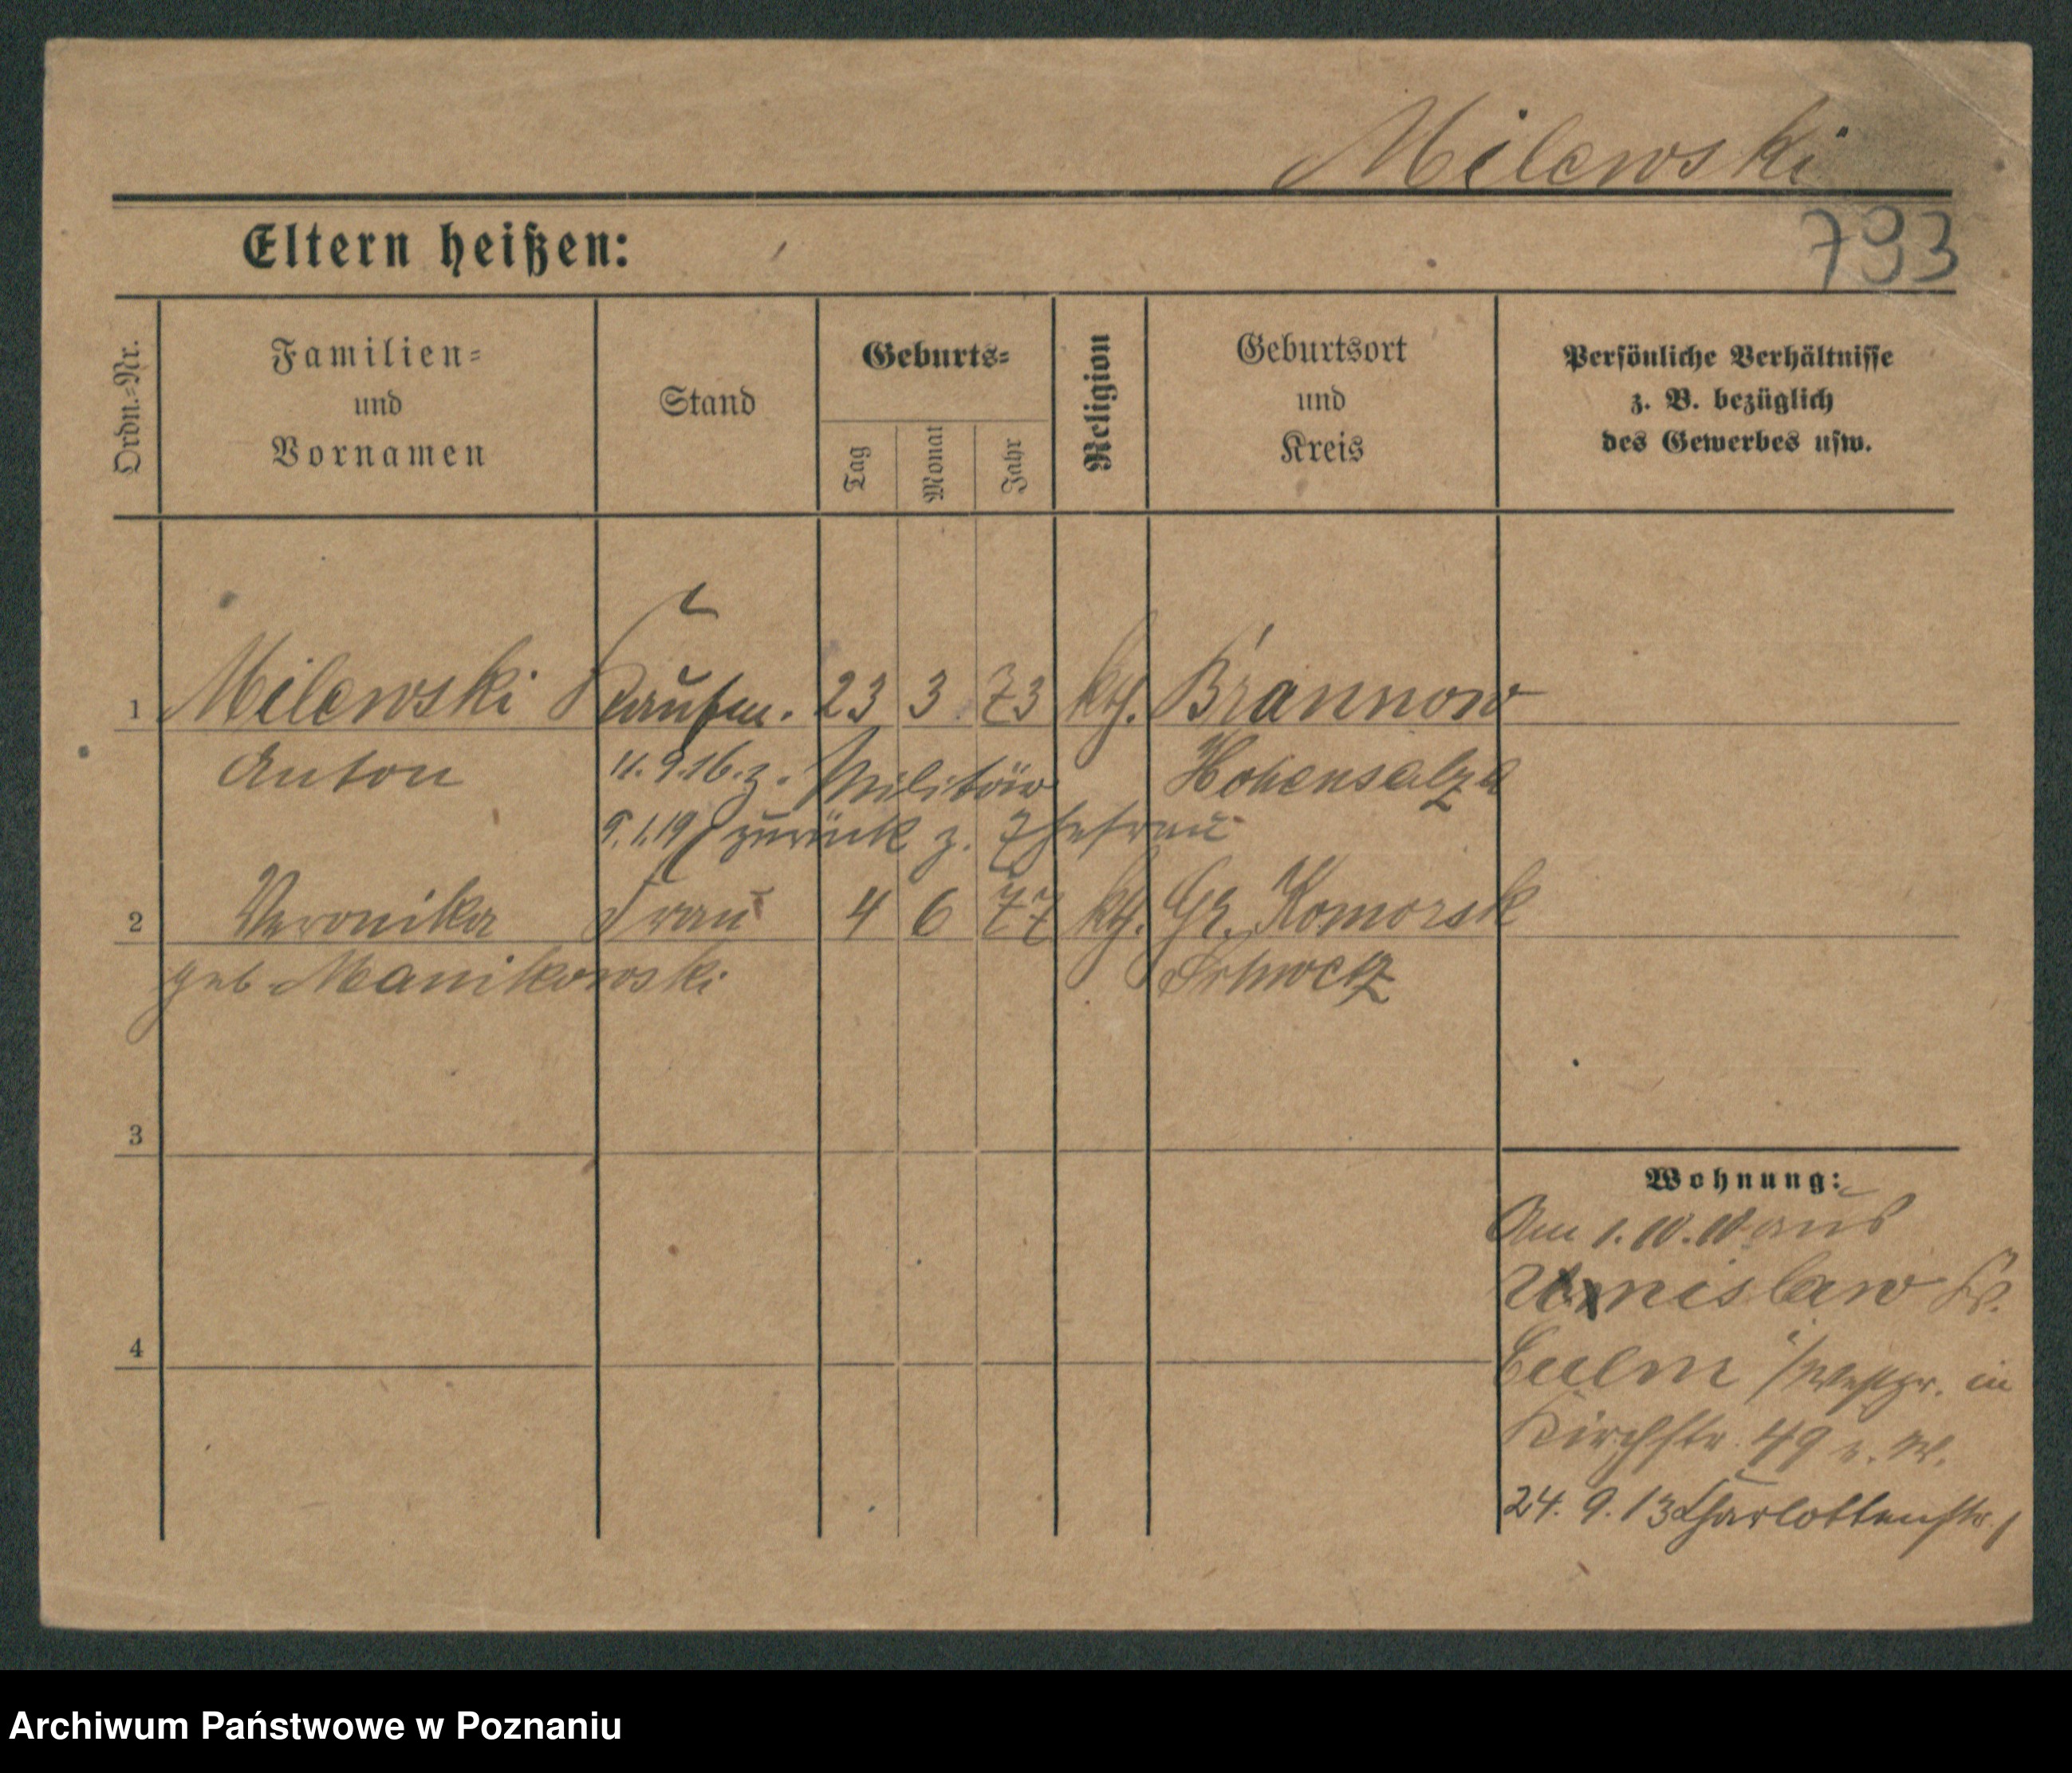 Milewski
Eltern heißen:
793
Ordn.=Nr.
Familien=
und
Vornamen
Stand
Geburts=
Tag
Monat
Jahr
Religion
Geburtsort
und
Kreis
Persönliche Verhältnisse
z. B. bezüglich
des Gewerbes usw.
1 Milewski Kaufm. 23 3. 73 kth. Brannow
Anton 11. 9. 16. z. Militär Hohensalza
9.1.19 zurück z. Ehefrau
2 Veronika Frau 4 6 77 kth. Gr. Komorsk
geb. Manikowski Schwetz
3
4
Wohnung:
Am 1. 10. 10 aus
Unislaw Kr.
Culm /Westpr. in
Kirchstr. 49 v. W.
24. 9. 13 Charlottenstr. 1
Archiwum Państwowe w Poznaniu